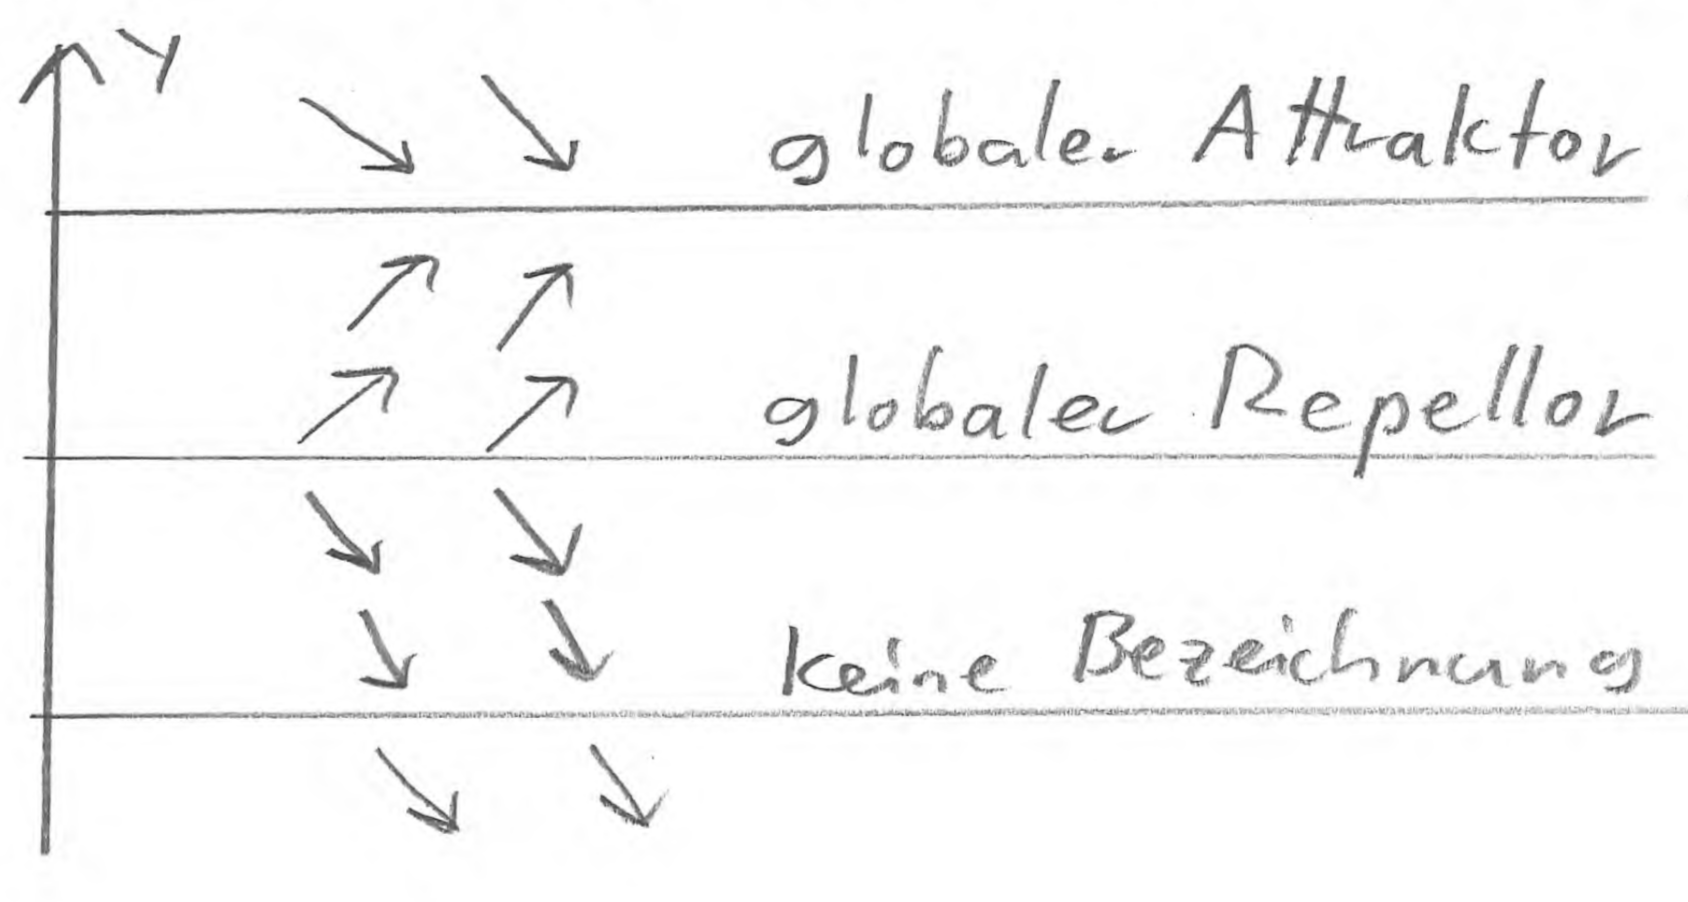 Y
globaler Attraktor
globaler Repellor
keine Bezeichnung